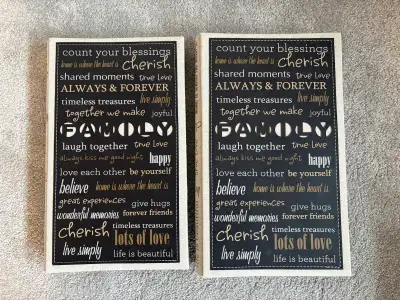 count your blessings
home is where the heart is Cherish
shared moments true love
ALWAYS & FOREVER
timeless treasures live simply
together we make joyful
FAMILY
laugh together true love
always kiss me good night happy
love each other be yourself
believe home is where the heart is
great experiences give hugs
wonderful memories forever friends
Cherish timeless treasures
live simply lots of love
life is beautiful
count your blessings
home is where the heart is Cherish
shared moments true love
ALWAYS & FOREVER
timeless treasures live simply
together we make joyful
FAMILY
laugh together true love
always kiss me good night happy
love each other be yourself
believe home is where the heart is
great experiences give hugs
wonderful memories forever friends
Cherish timeless treasures
live simply lots of love
life is beautiful